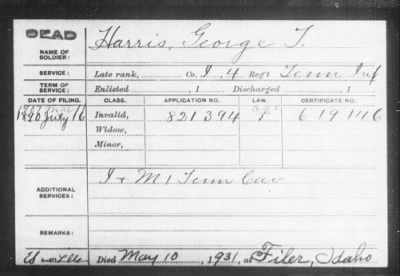 DEAD
NAME OF SOLDIER: Harris, George T.
SERVICE: Late rank, Co. I, 4 Reg't Tenn Inf
TERM OF SERVICE: Enlisted , 1 Discharged , 1
DATE OF FILING. CLASS. APPLICATION NO. LAW. CERTIFICATE NO.
1890 July 16 Invalid, 821394 619146
Widow,
Minor,
ADDITIONAL SERVICES: I + M 1 Tenn Cav
REMARKS:
Died May 10, 1931, at Filer, Idaho